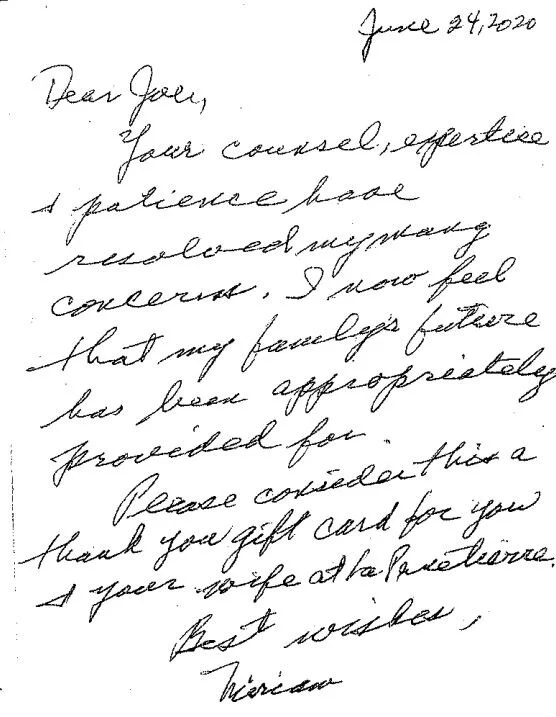 June 24, 2020
Dear Joe,
Your counsel, expertise
& patience have
resolved my many
concerns. I now feel
that my family's future
has been appropriately
provided for.
Please consider this a
thank you gift card for you
& your wife at
Best wishes,
Miriam